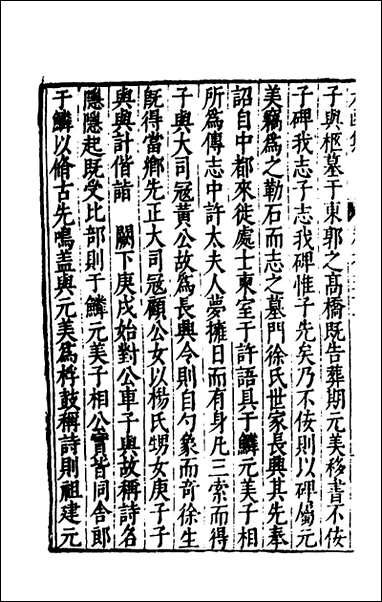 子與柩墓于東郭之髙橋既告葬期元美移書不佞
子碑我志子志我碑惟子先矣乃不佞則以碑屬元
美竊爲之勒石而志之墓門徐氏世家長興其先奉
詔自中都來徙處士東室于許語具于鱗元美子相
所爲傳志中許太夫人夢擁日而有身凡三索而得
子與大司冦黃公故爲長興令則自勺象而竒徐生
旣得當鄉先正大司冦顧公女以楊氏甥女庚子子
與與計偕詣 闕下庚戌始對公車子與故稱詩名
隱隱起既受比部則于鱗元美子相公實皆同舍郎
于鱗以脩古先鳴盖與元美爲桴鼓稱詩則祖建元